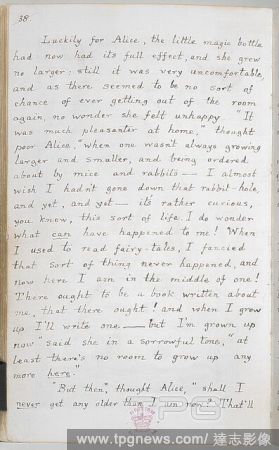 38.
Luckily for Alice, the little magic bottle
had now had its full effect, and she grew
no larger: still it was very uncomfortable,
and as there seemed to be no sort of
chance of ever getting out of the room
again, no wonder she felt unhappy. "It
was much pleasanter at home," thought
poor Alice, "when one wasn't always growing
larger and smaller, and being ordered
about by mice and rabbits — I almost
wish I hadn't gone down that rabbit-hole,
and yet, and yet — it's rather curious,
you know, this sort of life. I do wonder
what can have happened to me! When
I used to read fairy-tales, I fancied
that sort of thing never happened, and
now here I am in the middle of one!
There ought to be a book written about
me, that there ought! and when I grow
up I'll write one — but I'm grown up
now" said she in a sorrowful tone, "at
least there's no room to grow up any
more here."
"But then," thought Alice, "shall I
never get any older than I am now? That'll
www.tpgnews.com/ 達志影像